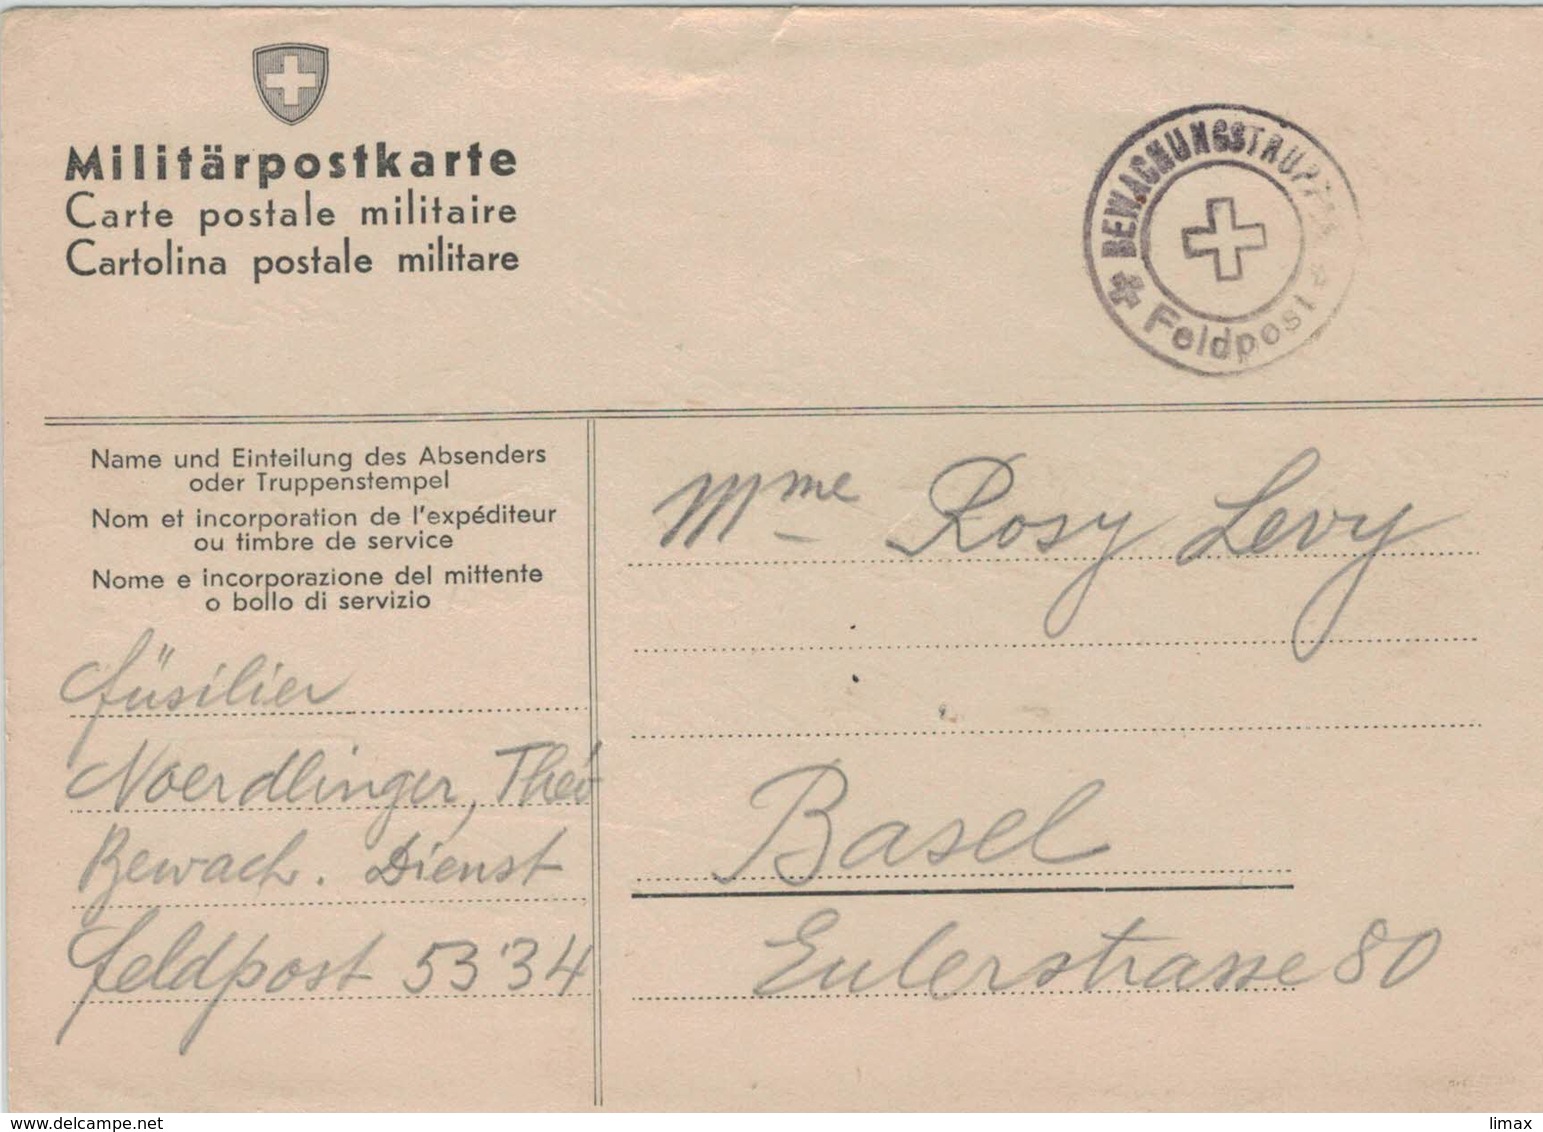 Militärpostkarte
Carte postale militaire
Cartolina postale militare
BEWACHUNGSTRUPPEN
Feldpost
Name und Einteilung des Absenders
oder Truppenstempel
Nom et incorporation de l'expéditeur
ou timbre de service
Nome e incorporazione del mittente
o bollo di servizio
Füsilier
Noerdlinger, Théo
Bewach. Dienst
Feldpost 53'34
Mme Rosy Levy
Basel
Eulerstrasse 80
delcampe.net
limax